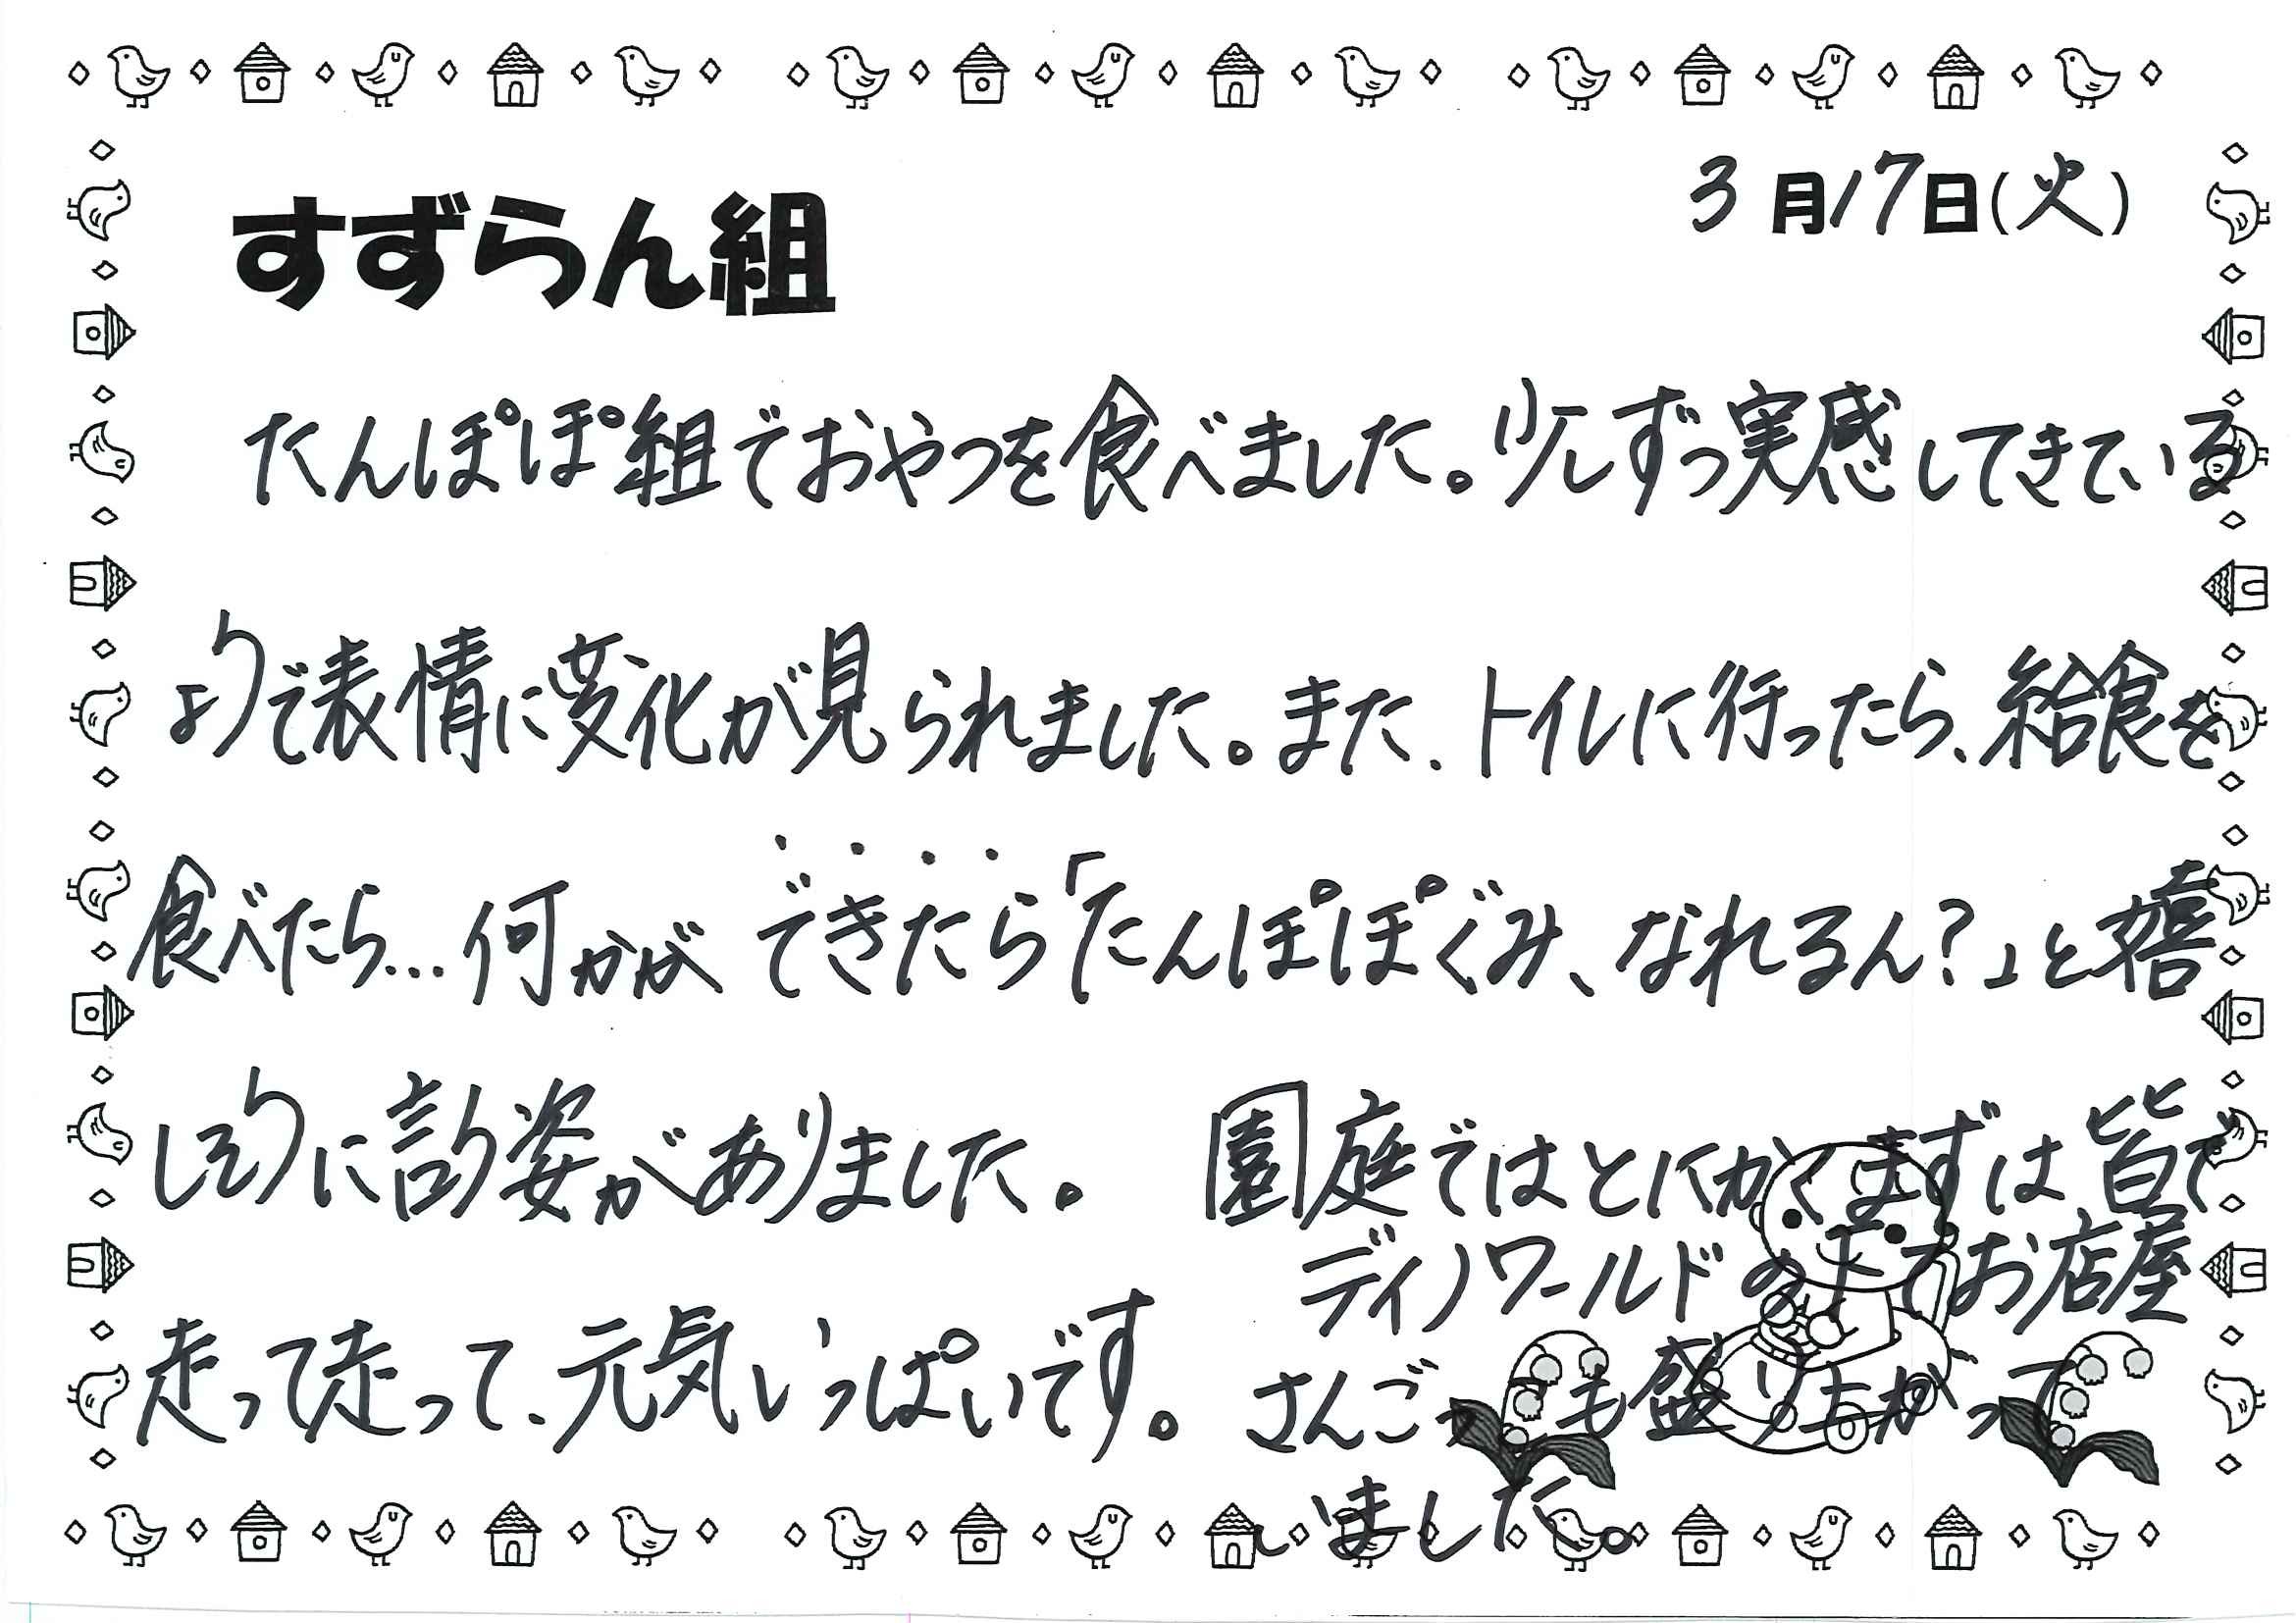 3月17日(火)
すずらん組
たんぽぽ組でおやつを食べました。少しずつ実感してきている
ようで表情に変化が見られました。また、トイレに行ったら、給食を
食べたら…何かができたら「たんぽぽぐみ、なれるん?」と嬉
しそうに訪姿がありました。 園庭ではとにかくまずは皆で
走って走って、元気いっぱいです。
ディノワールドの下でお店屋
さんごっこも盛り上がって
いました。